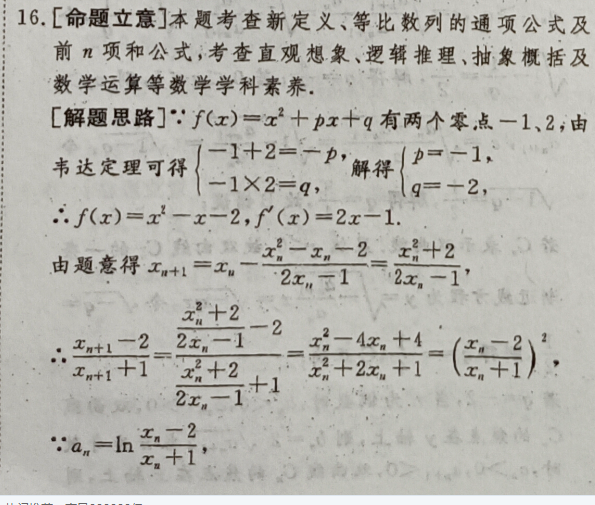 16.[命题立意]本题考查新定义、等比数列的通项公式及
前 n 项和公式,考查直观想象、逻辑推理、抽象概括及
数学运算等数学学科素养.
[解题思路]∵f(x)=x²+px+q 有两个零点-1、2,由
韦达定理可得{-1+2=-p, -1×2=q, 解得{p=-1, q=-2,
∴f(x)=x²-x-2,f′(x)=2x-1.
由题意得 xₙ₊₁=xₙ-(xₙ²-xₙ-2)/(2xₙ-1)=(xₙ²+2)/(2xₙ-1),
∴(xₙ₊₁-2)/(xₙ₊₁+1)=((xₙ²+2)/(2xₙ-1)-2)/((xₙ²+2)/(2xₙ-1)+1)=(xₙ²-4xₙ+4)/(xₙ²+2xₙ+1)=((xₙ-2)/(xₙ+1))²,
∵aₙ=ln (xₙ-2)/(xₙ+1),